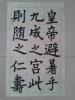 皇帝避暑乎
九成之宫此
則隨之仁壽